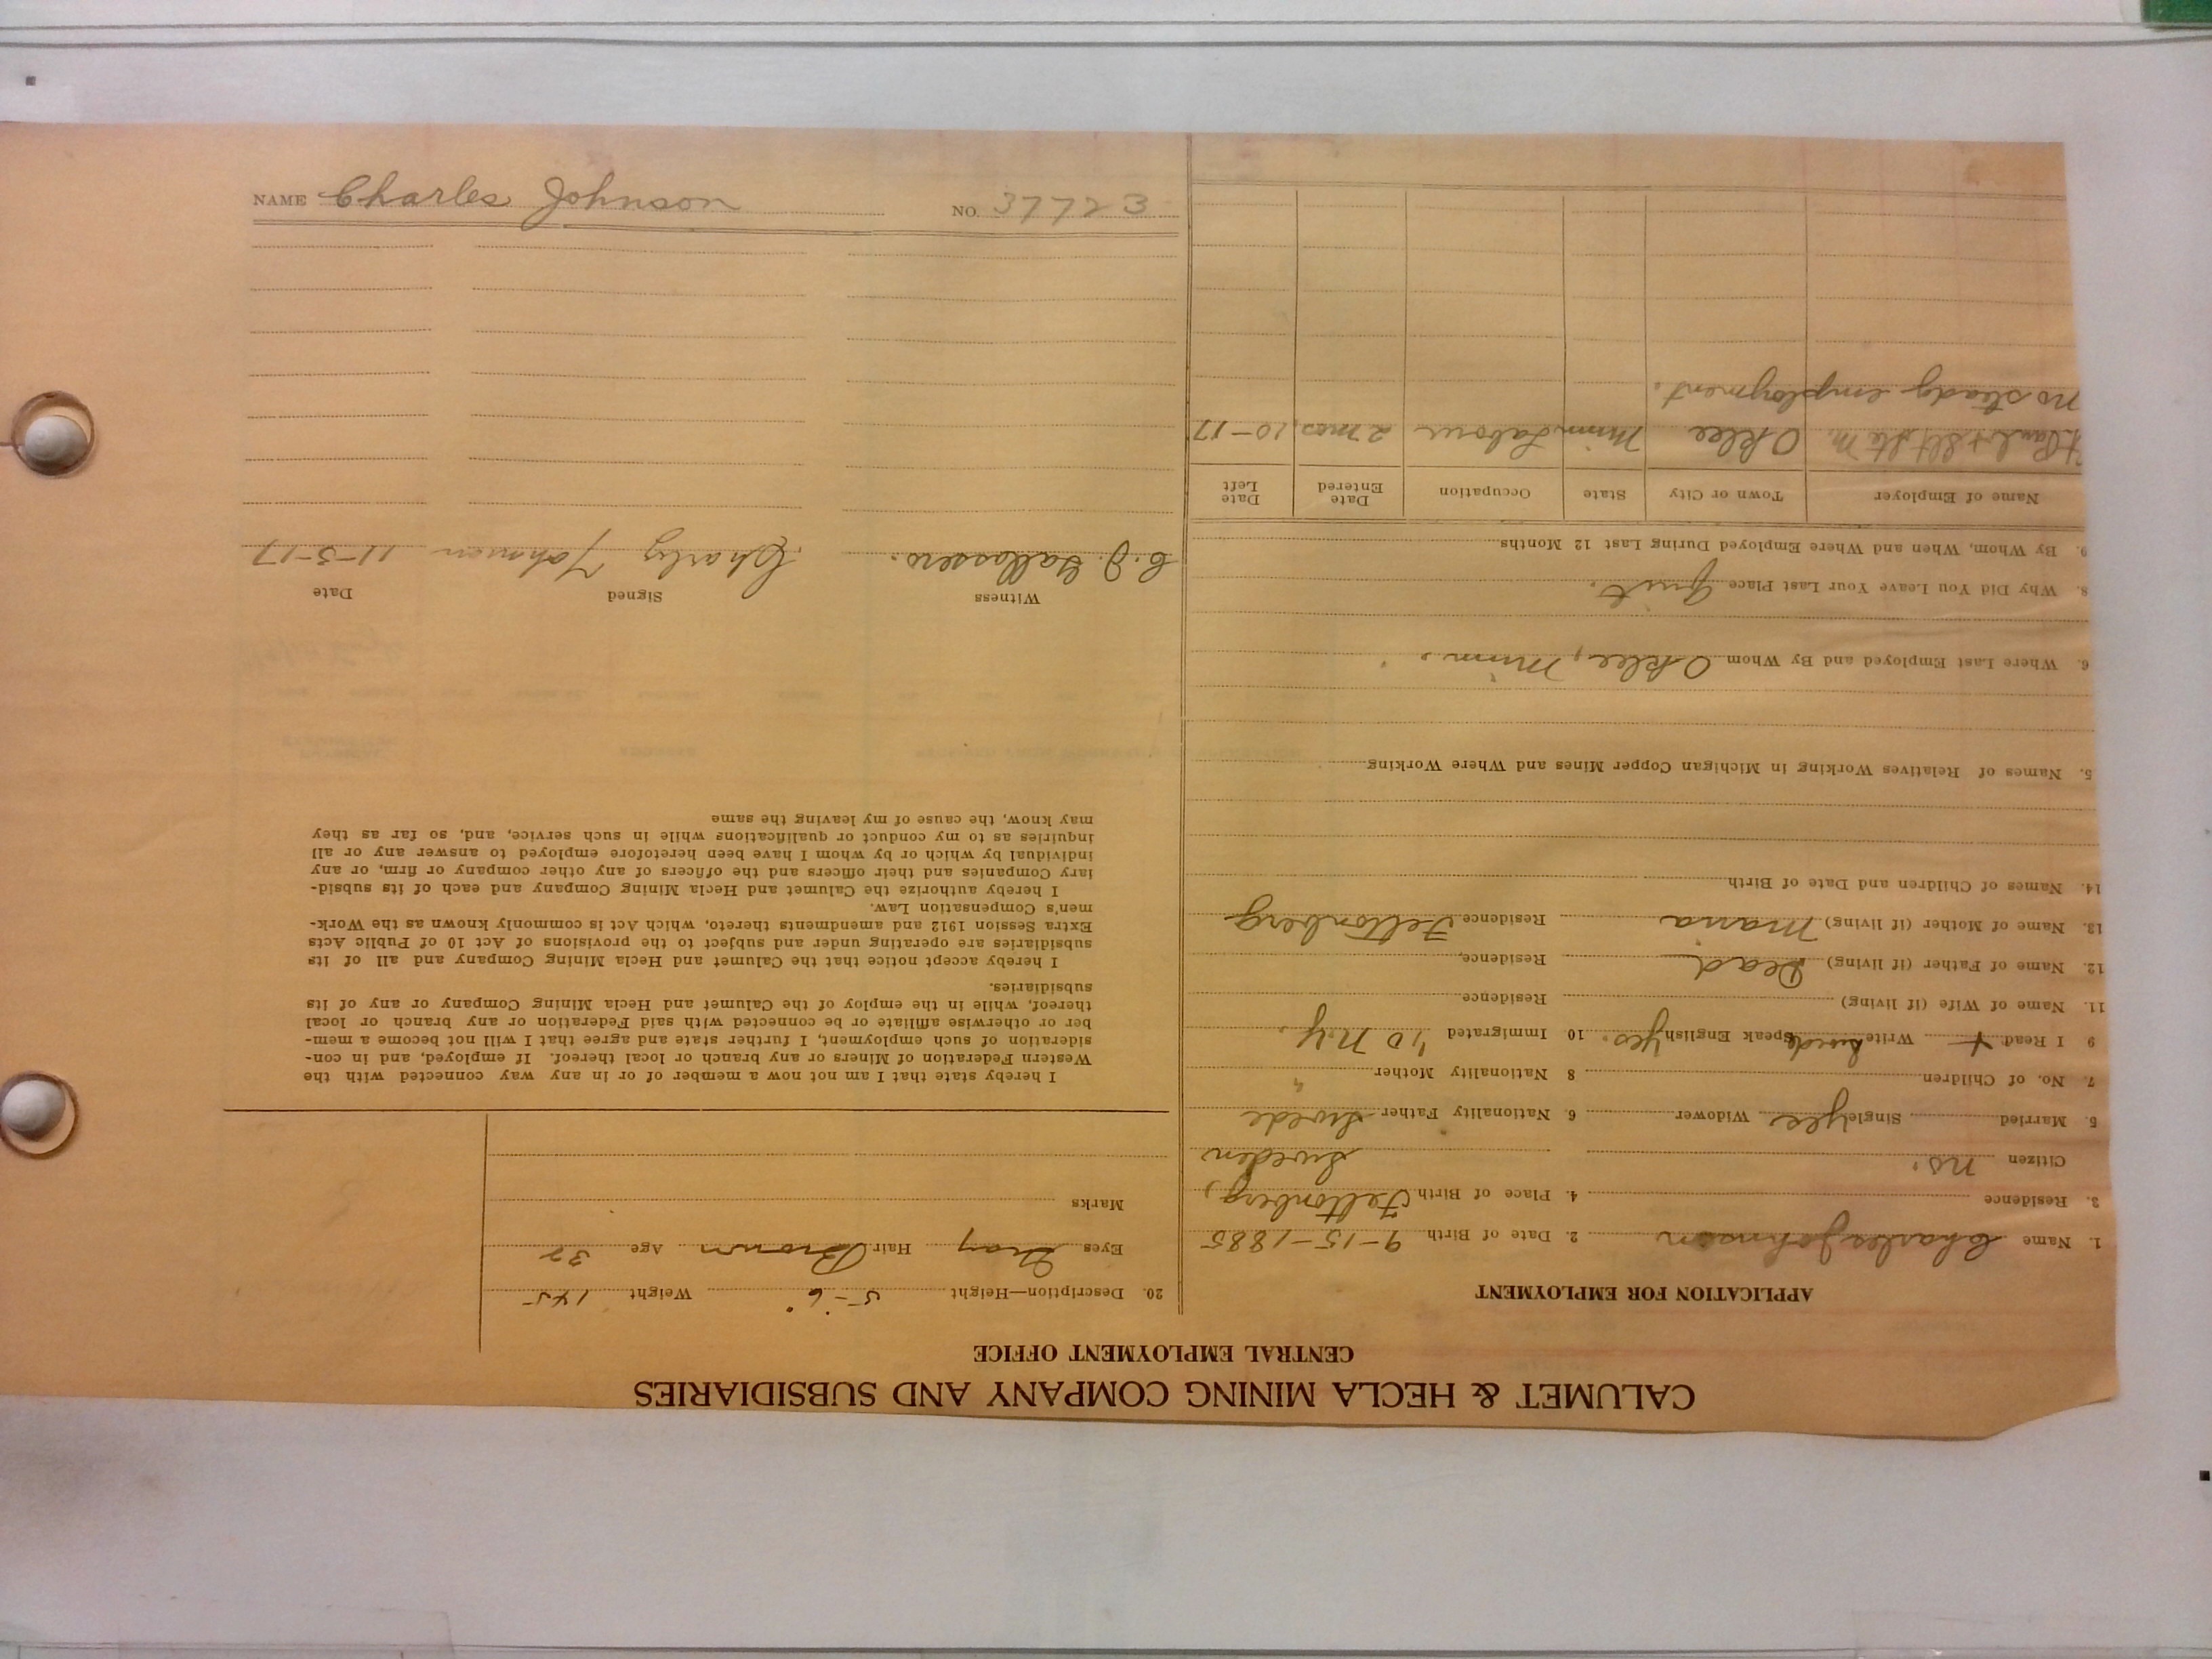 CALUMET & HECLA MINING COMPANY AND SUBSIDIARIES
CENTRAL EMPLOYMENT OFFICE
APPLICATION FOR EMPLOYMENT
1. Name Charles Johnson 2. Date of Birth 9-15-1885
3. Residence 4. Place of Birth Feltonberg,
Citizen no. Sweden
5. Married Single yes Widower 6. Nationality Father Swede
7. No. of Children 8 Nationality Mother "
9 I Read + Write Swede Speak English yes. 10 Immigrated '10 N.Y.
11. Name of Wife (if living) Residence
12. Name of Father (if living) Dead Residence
13. Name of Mother (if living) Maria Residence Feltonberg
14. Names of Children and Date of Birth
5. Names of Relatives Working in Michigan Copper Mines and Where Working
6. Where Last Employed and By Whom Oklee, Minn.
8. Why Did You Leave Your Last Place Quit.
9. By Whom, When and Where Employed During Last 12 Months
Name of Employer Town or City State Occupation Date Entered Date Left
Oklee Minn Labour 2 mos, 10-17
no steady employment.
20. Description—Height 5-6" Weight 145
Eyes Gray Hair Brown Age 32
Marks
I hereby state that I am not now a member of or in any way connected with the
Western Federation of Miners or any branch or local thereof. If employed, and in con-
sideration of such employment, I further state and agree that I will not become a mem-
ber or otherwise affiliate or be connected with said Federation or any branch or local
thereof, while in the employ of the Calumet and Hecla Mining Company or any of its
subsidiaries.
I hereby accept notice that the Calumet and Hecla Mining Company and all of its
subsidiaries are operating under and subject to the provisions of Act 10 of Public Acts
Extra Session 1912 and amendments thereto, which Act is commonly known as the Work-
men's Compensation Law.
I hereby authorize the Calumet and Hecla Mining Company and each of its subsid-
iary Companies and their officers and the officers of any other company or firm, or any
individual by which or by whom I have been heretofore employed to answer any or all
inquiries as to my conduct or qualifications while in such service, and, so far as they
may know, the cause of my leaving the same
Witness Signed Date
C. J. Charly Johnson 11-5-17
NAME Charles Johnson NO. 37723